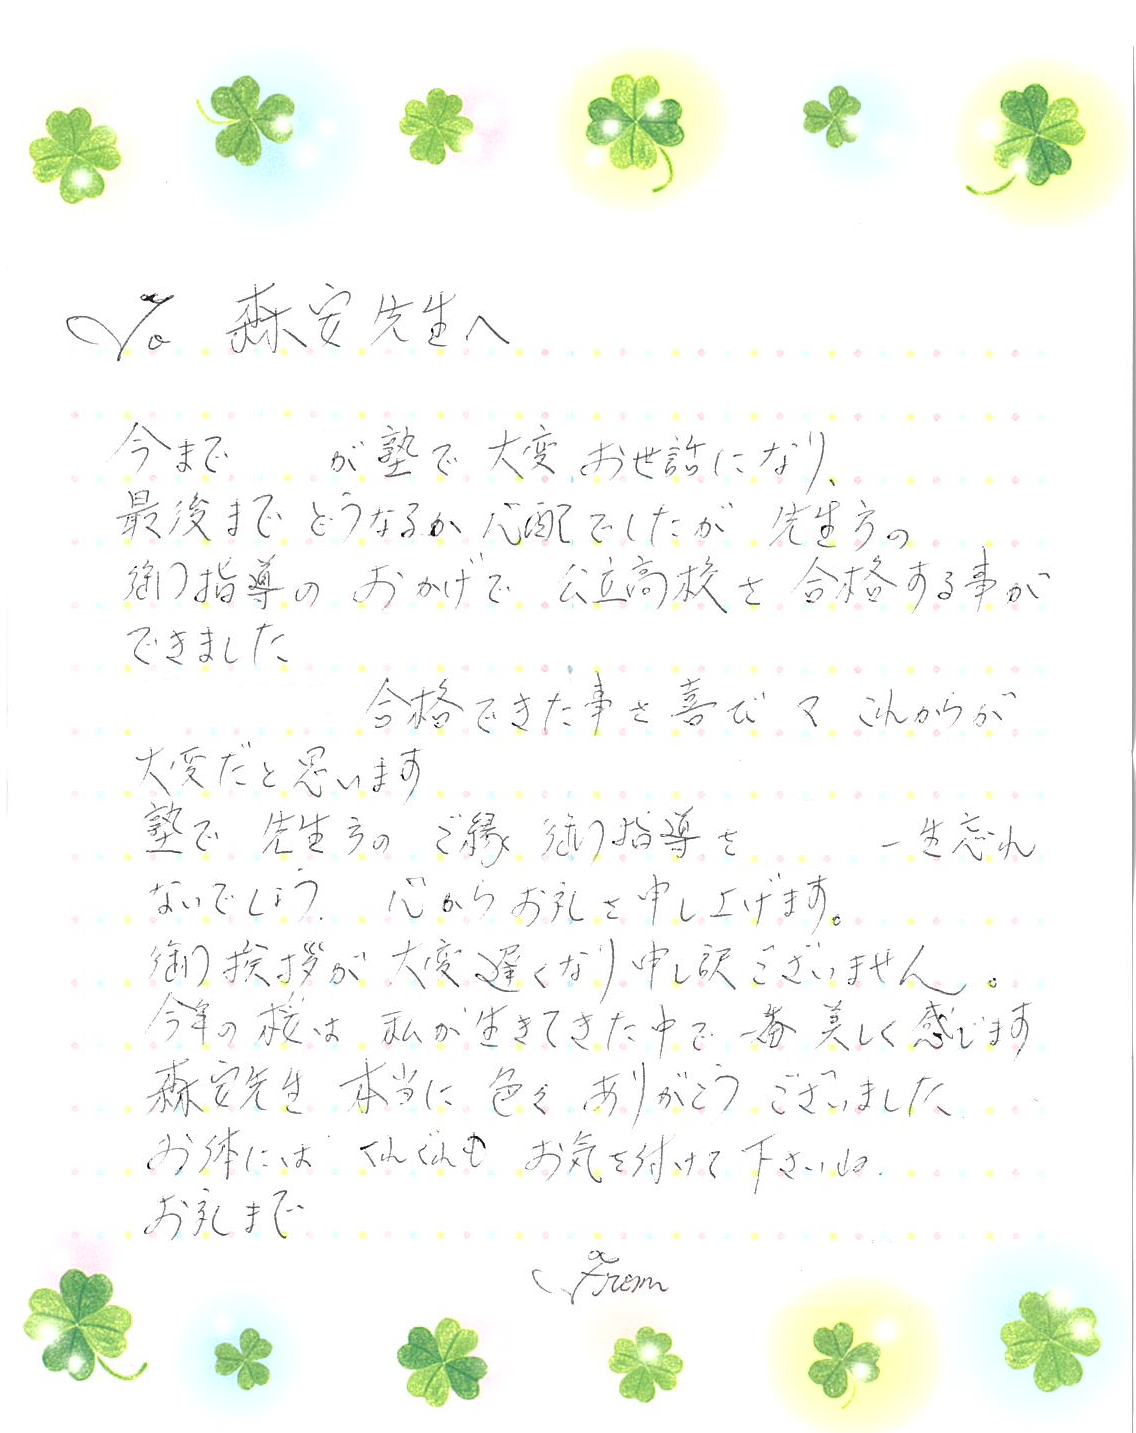 To 森安先生へ
今まで が塾で大変お世話になり、
最後までどうなるか心配でしたが 先生方の
御指導の おかげで 公立高校を合格する事が
できました
合格できた事を喜びマ これからが
大変だと思います
塾で 先生方の ご縁 御指導を 一生忘れ
ないでしょう. 心からお礼を申し上げます。
御挨拶が大変遅くなり申し訳ございません。
今年の桜は 私が生きてきた中で一番美しく感じます
森安先生 本当に 色々 ありがとうございました
お体には くれぐれも お気を付けて下さいね.
お礼まで
From